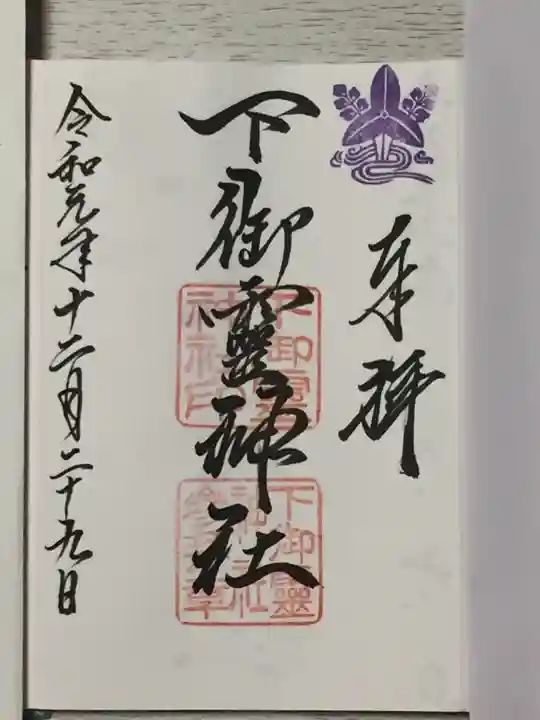 奉拝
下御靈神社
下御霊神社印
下御靈神社
令和元年十二月二十九日